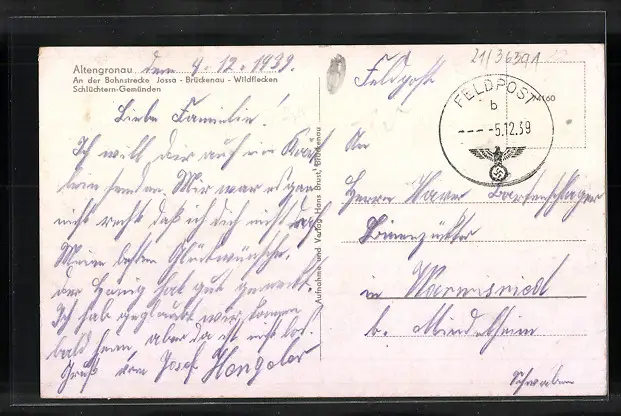 Altengronau den 4.12.1939.
An der Bahnstrecke Jossa - Brückenau - Wildflecken
Schlüchtern-Gemünden
Liebe Familie!
Ich will dir auch ein Kart
senden. Mir war es gar
nicht recht daß ich dich nicht
Meine besten Glückwünsche.
der Honig hat gut gemacht.
Ich hab geglaubt wir kommen
bald heim, aber da ist nicht los.
Gruß von Josef Hengeler
Aufnahme und Verlag Hans Brust, Brückenau
21/36391
Feldpost
FELDPOST
b
-5.12.39
An
Herrn
Bienenzüchter
in Warmisried
b. Mindelheim
Schwaben